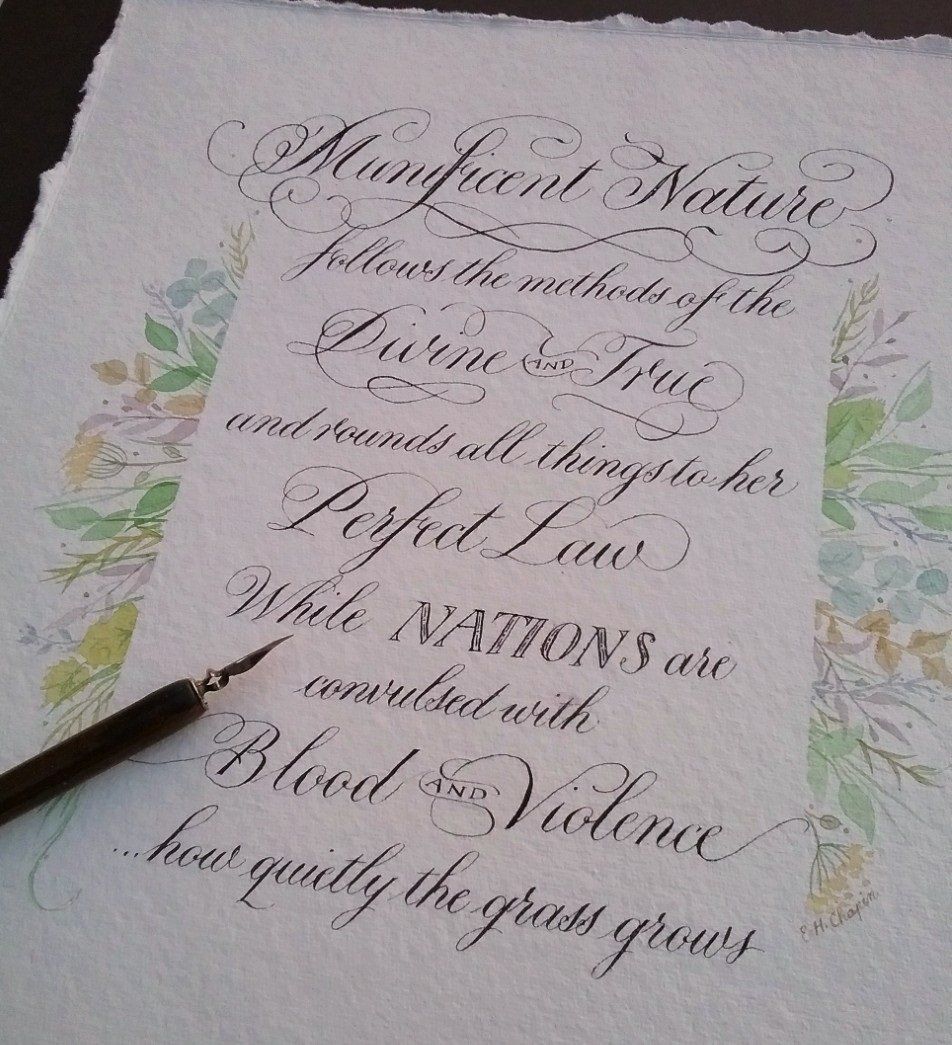 Munificent Nature
follows the methods of the
Divine AND True
and rounds all things to her
Perfect Law
While NATIONS are
convulsed with
Blood AND Violence
...how quietly the grass grows
E.H. Chapin